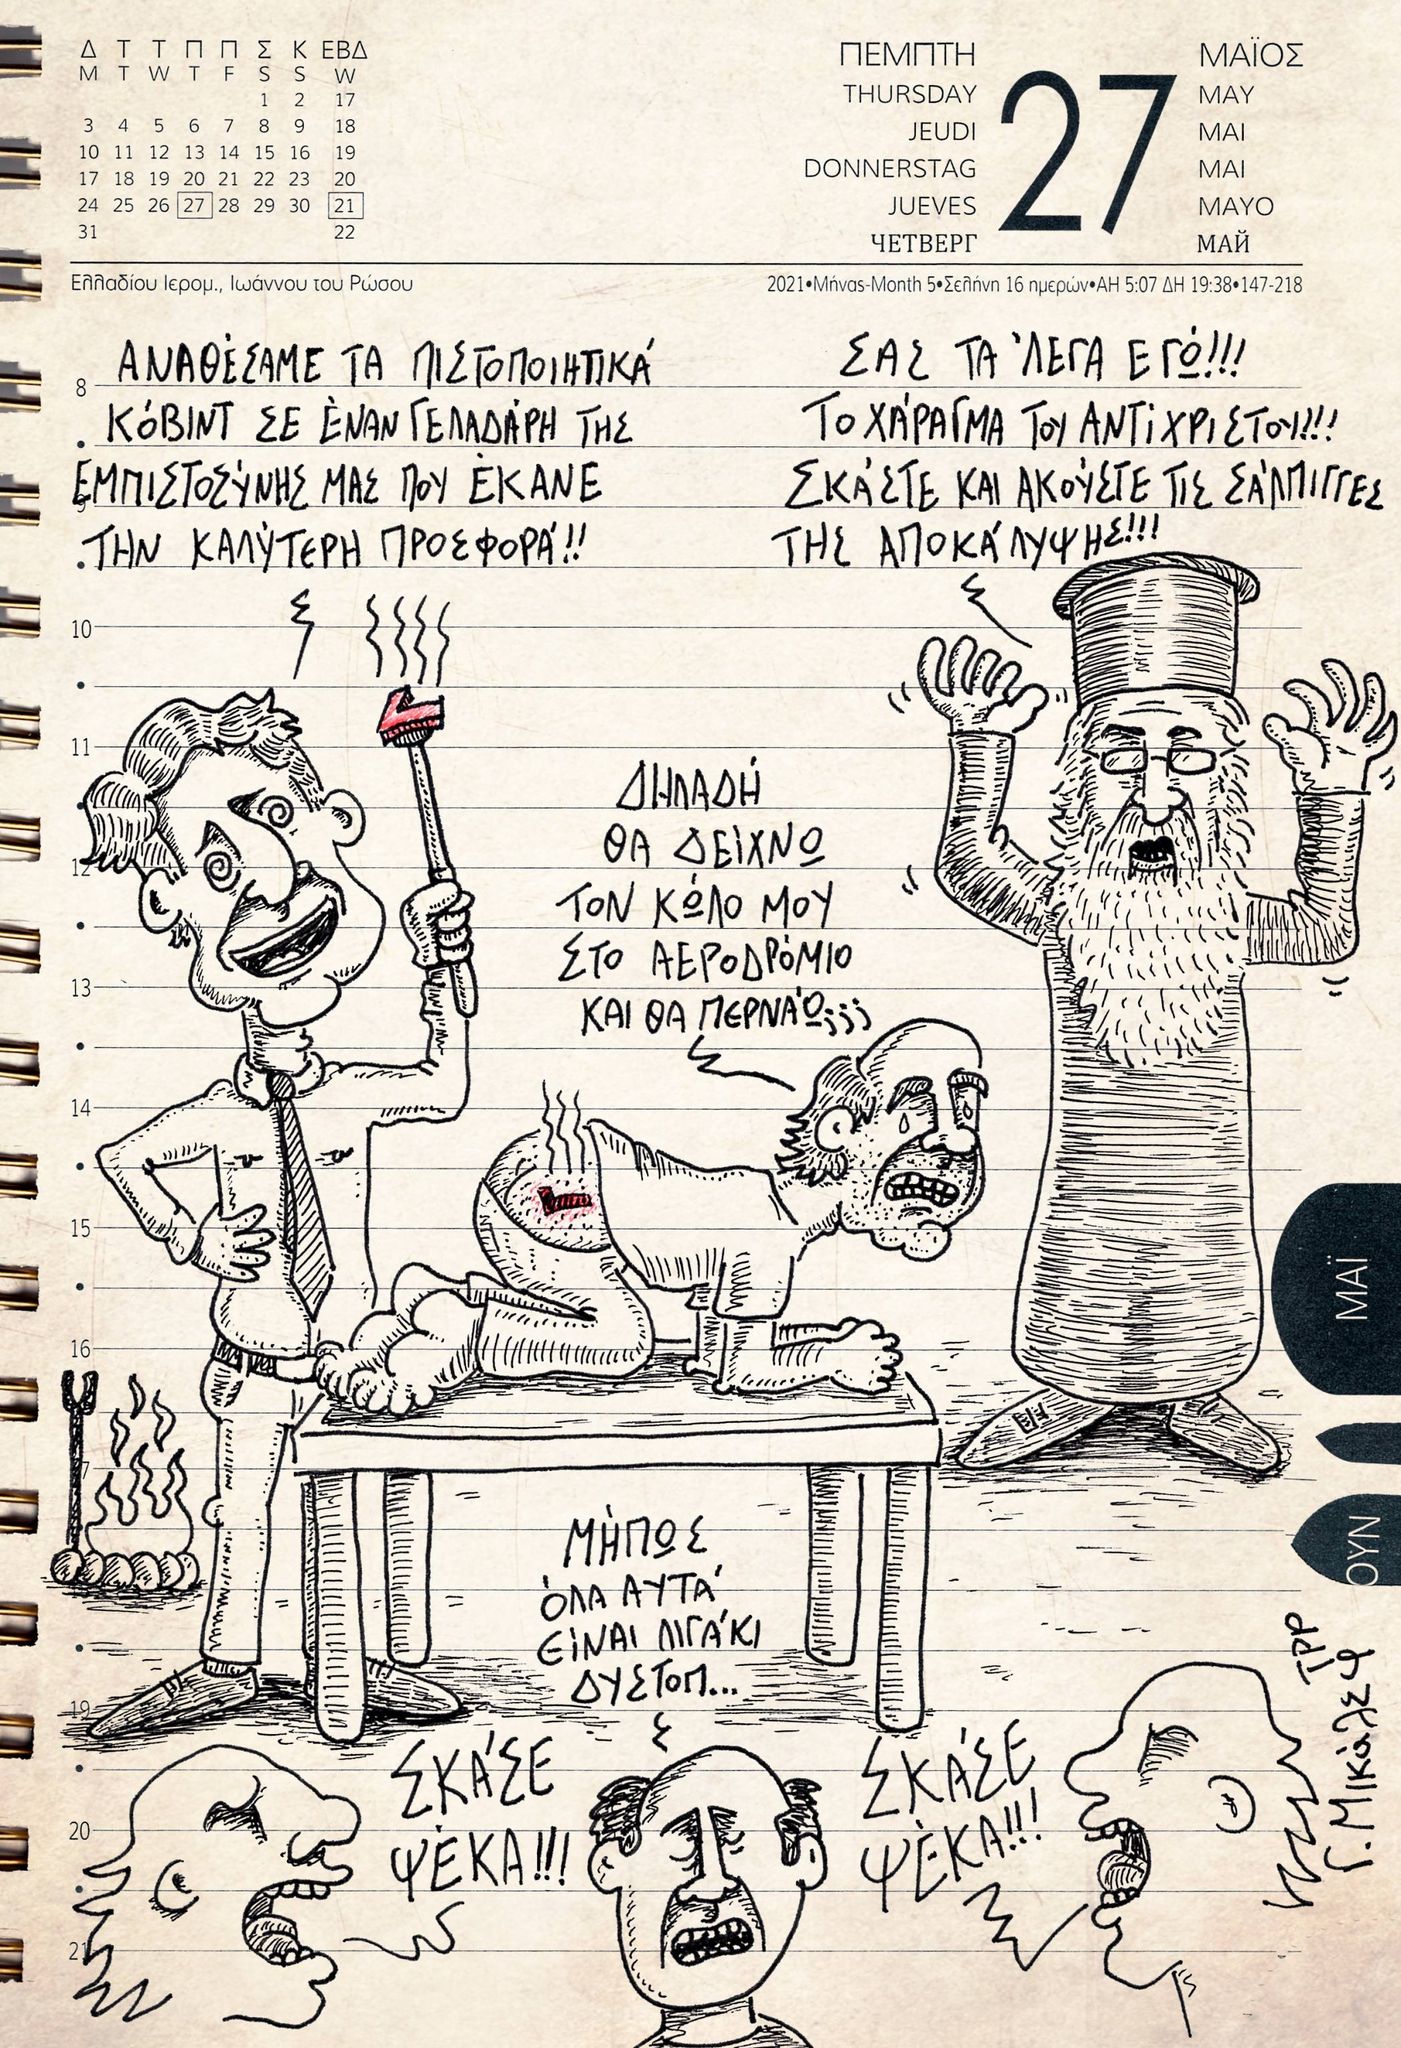 Δ Τ Τ Π Π Σ Κ ΕΒΔ
M T W T F S S W
1 2 17
3 4 5 6 7 8 9 18
10 11 12 13 14 15 16 19
17 18 19 20 21 22 23 20
24 25 26 27 28 29 30 21
31 22
ΠΕΜΠΤΗ
THURSDAY
JEUDI
DONNERSTAG
JUEVES
ЧЕТВЕРГ
27
ΜΑΪΟΣ
MAY
MAI
MAI
MAYO
МАЙ
Ελλαδίου Ιερομ., Ιωάννου του Ρώσου
2021•Μήνας-Month 5•Σελήνη 16 ημερών•ΑΗ 5:07 ΔΗ 19:38•147-218
ΑΝΑΘΈΣΑΜΕ ΤΑ ΠΙΣΤΟΠΟΙΗΤΙΚΆ
ΚΌΒΙΝΤ ΣΕ ΈΝΑΝ ΓΕΛΑΔΆΡΗ ΤΗΣ
ΕΜΠΙΣΤΟΣΎΝΗΣ ΜΑΣ ΠΟΥ ΈΚΑΝΕ
ΤΗΝ ΚΑΛΎΤΕΡΗ ΠΡΟΣΦΟΡΆ!!
ΣΑΣ ΤΑ 'ΛΕΓΑ ΕΓΏ!!!
ΤΟ ΧΆΡΑΓΜΑ ΤΟΥ ΑΝΤΊΧΡΙΣΤΟΥ!!!
ΣΚΆΣΤΕ ΚΑΙ ΑΚΟΎΣΤΕ ΤΙΣ ΣΆΛΠΙΓΓΕΣ
ΤΗΣ ΑΠΟΚΆΛΥΨΗΣ!!!
8
9
10
11
12
13
14
15
16
7
19
20
21
ΔΗΛΑΔΉ
ΘΑ ΔΕΊΧΝΩ
ΤΟΝ ΚΏΛΟ ΜΟΥ
ΣΤΟ ΑΕΡΟΔΡΌΜΙΟ
ΚΑΙ ΘΑ ΠΕΡΝΆΩ;;;
ΜΑΪ
ΟΥΝ
ΜΉΠΩΣ
ΌΛΑ ΑΥΤΆ
ΕΊΝΑΙ ΛΙΓΆΚΙ
ΔΥΣΤΟΠ...
ΣΚΆΣΕ
ΨΈΚΑ!!!
ΣΚΆΣΕ
ΨΈΚΑ!!!
ΤΡΡ
Γ. Μικάλεφ